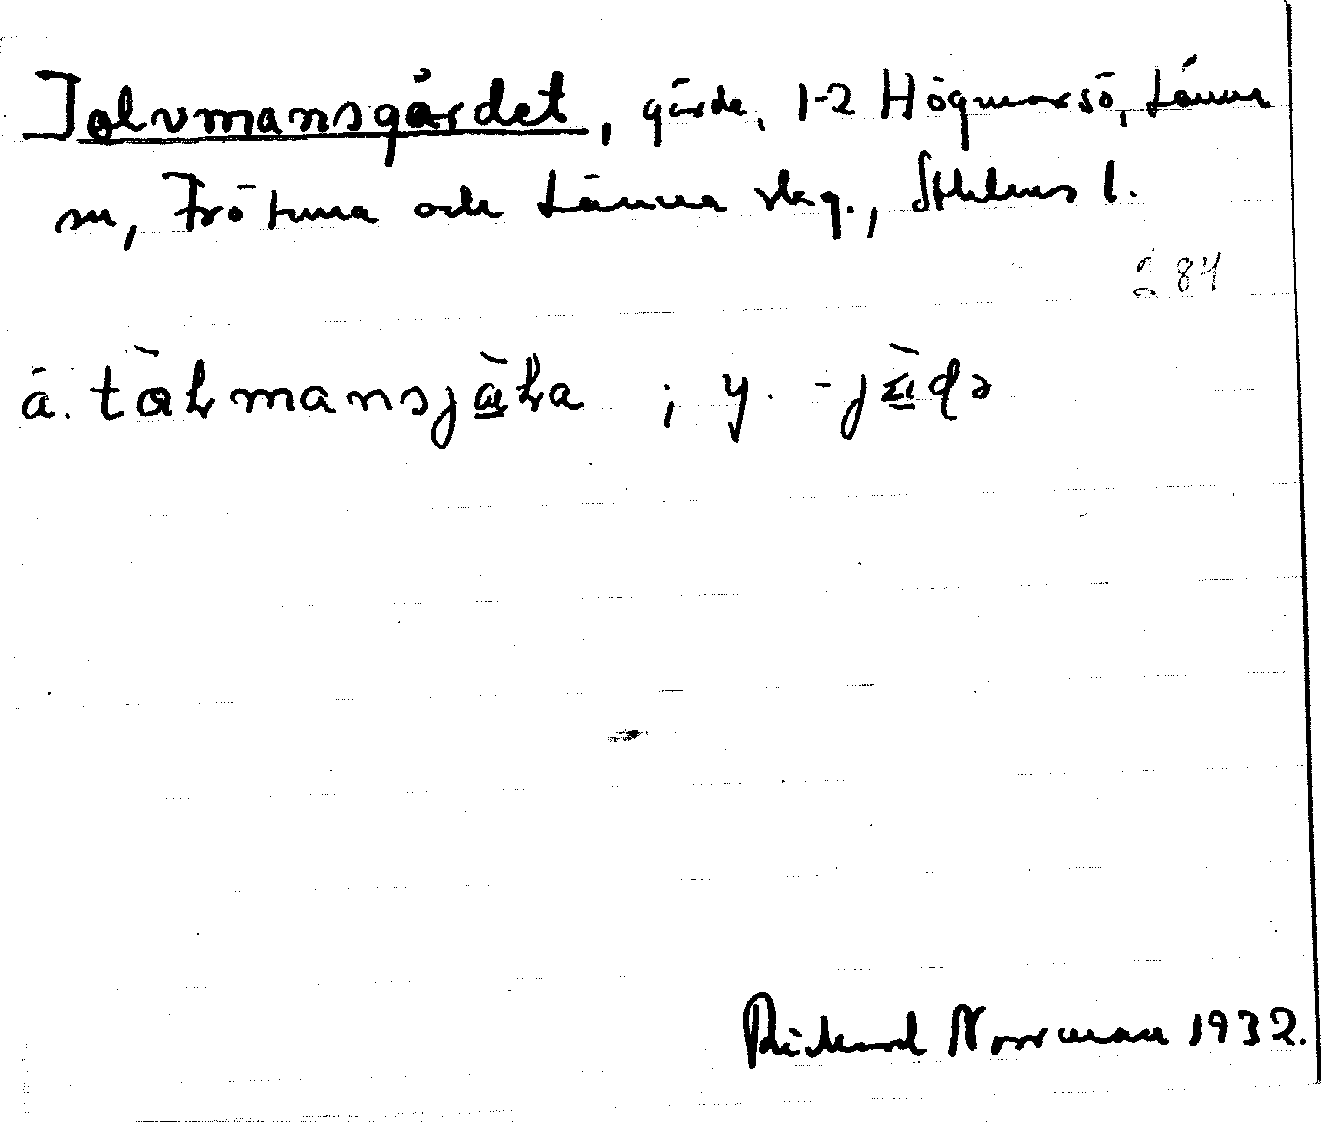 Tolvmansgärdet, gärde, 1-2 Högmarsö, Länna
sn, Frötuna och Länna skg., Sthlms l.
284
ä. tòlmansjæ̀ƚa ; y. -jæ̀ḍə
Rickard Norrman 1932.